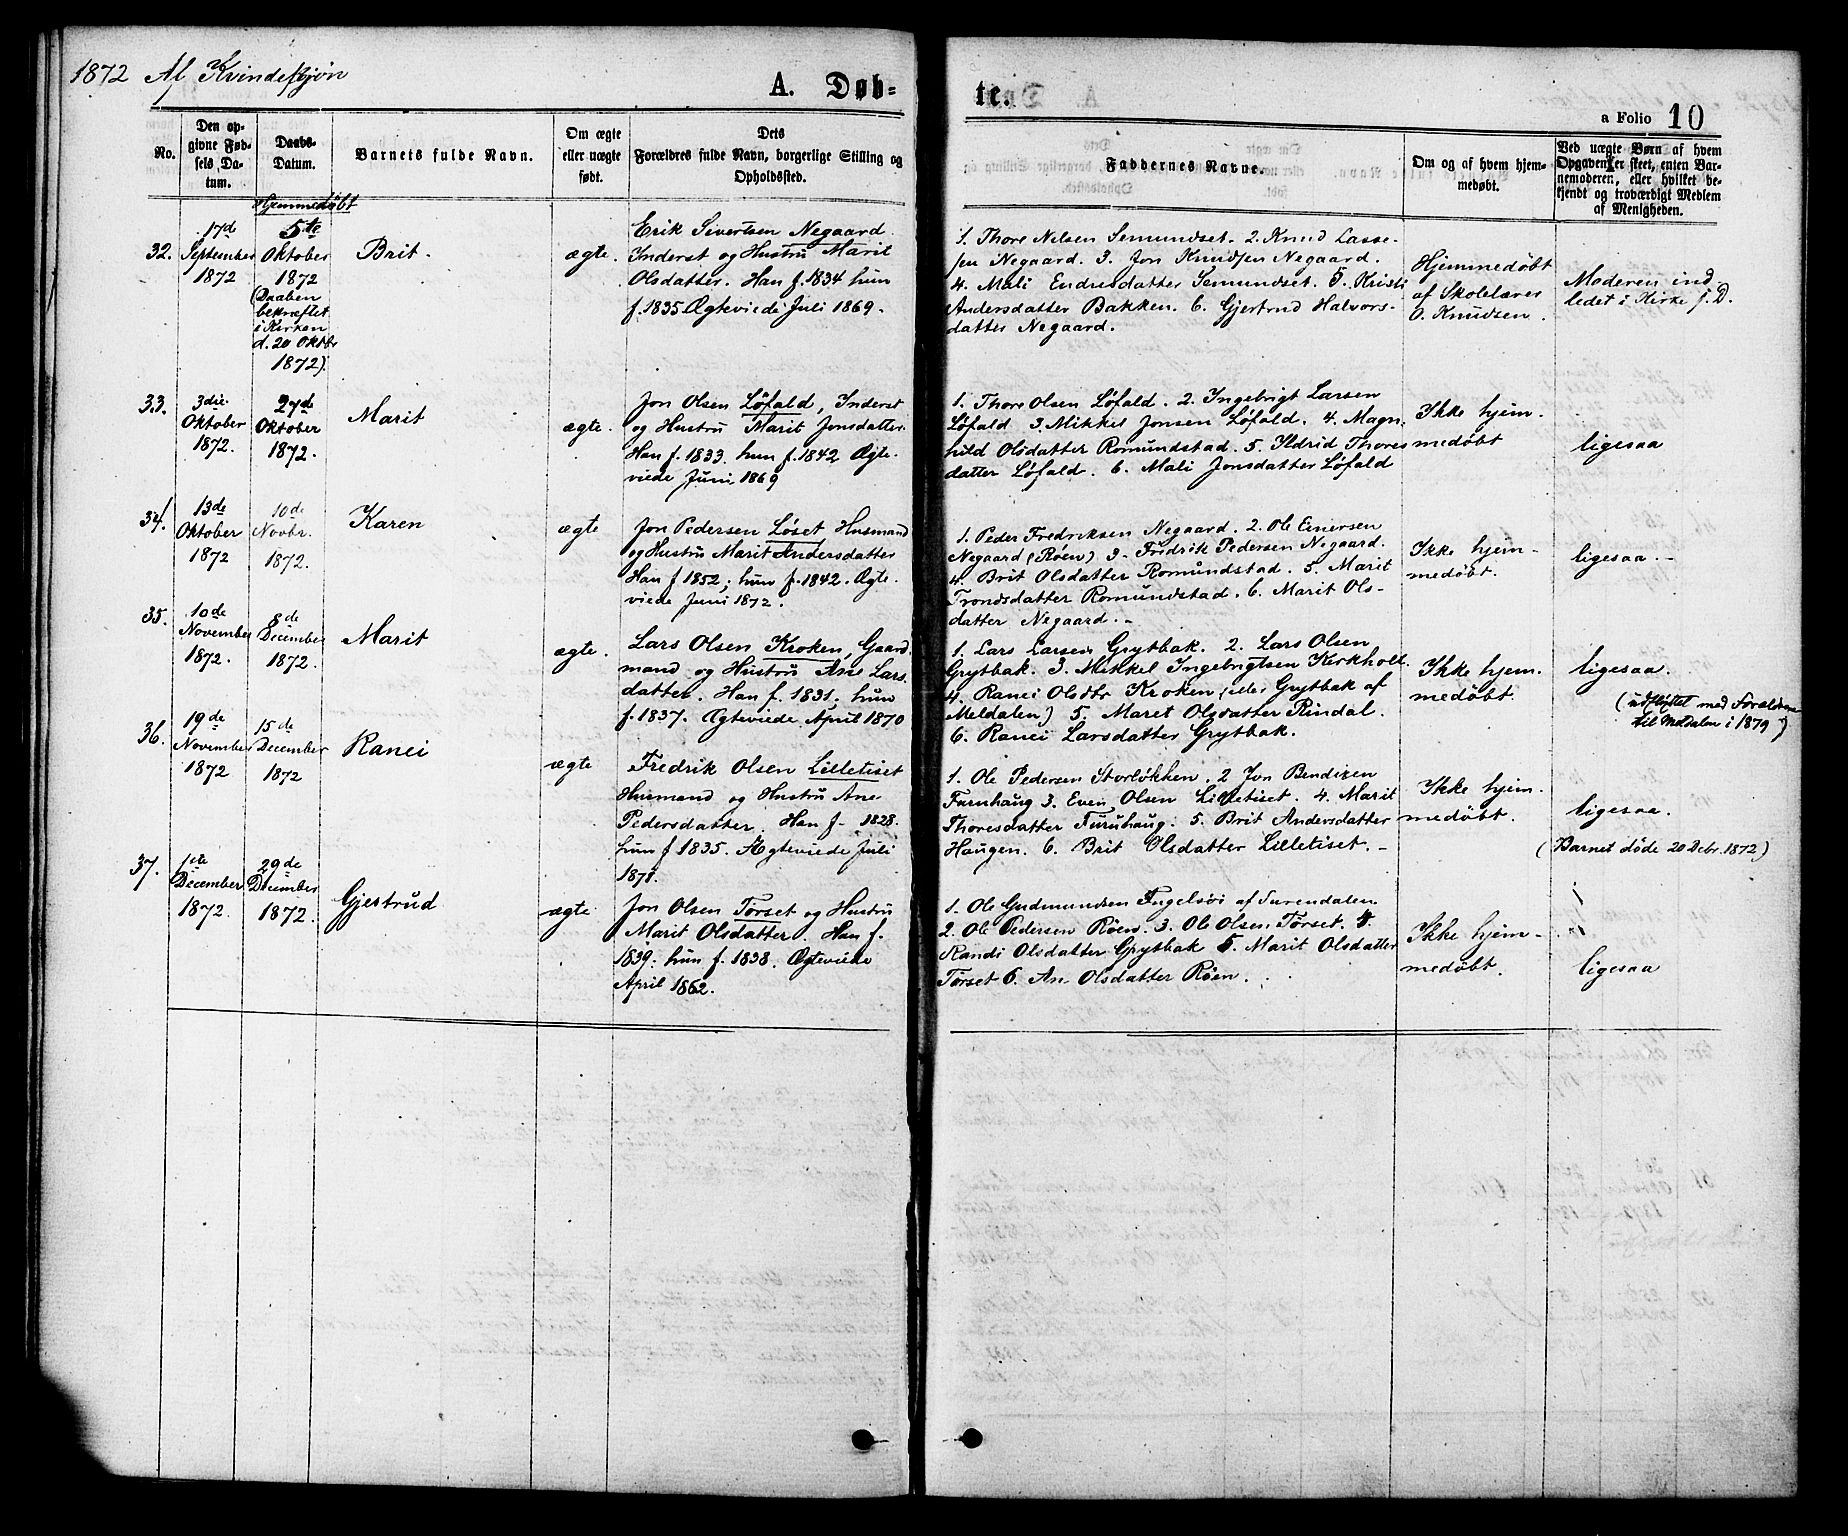 1872 Af Kvindekjøn
A. Døb=
te.
a Folio 10
No.
Den op-
givne Fød-
sels Da-
tum.
Daabs-
Datum.
Barnets fulde Navn.
Om ægte
eller uægte
født.
Dets
Forældres fulde Navn, borgerlige Stilling og
Opholdssted.
Faddernes Navne.
Om og af hvem hjem-
medøbt.
Ved uægte Børn af hvem
Opgaven er skeet, enten Bar-
nemoderen, eller hvilket be-
kjendt og troværdigt Medlem
af Menigheden.
32.
17de
September
1872
Hjemmedøbt
5te
Oktober
1872
(Daaben
bekræftet
i Kirken
d. 20 Oktbr
1872).
Brit.
ægte.
Erik Sivertsen Negaard
Inderst og Hustru Marit
Olsdatter. Han f. 1834 hun
f. 1835 Ægteviede Juli 1869.
1. Thore Nelsen Semundset. 2. Knud Lasse-
sen Negaard. 3. Jon Knudsen Negaard.
4. Mali Endresdatter Semundset. 5. Kristi
Andersdatter Bakken. 6. Gjertrud Halvors-
datter Negaard.
Hjemmedøbt
af Skolelærer
O. Knudsen.
Moderen ind
ledet i Kirke f. D.
33.
3die
Oktober
1872.
27de
Oktober
1872.
Marit
ægte.
Jon Olsen Løfald, Inderst
og Hustru Marit Jonsdatter.
Han f. 1833. hun f. 1842 Ægte-
viede Juni 1869
1. Thore Olsen Løfald. 2. Ingebrigt Larsen
Løfald 3. Mikkel Jonsen Løfald. 4. Magn-
hild Olsdatter Romundstad. 5. Ildrid Thores
datter Løfald. 6. Mali Jonsdatter Løfald
Ikke hjem-
medøbt
ligesaa
34.
13de
Oktober
1872
10de
Novbr.
1872.
Karen
ægte
Jon Pedersen Løset Husmand
og Hustru Marit Andersdatter
Han f 1852, hun f. 1842. Ægte-
viede Juni 1872.
1. Peder Fredriksen Negaard. 2. Ole Einersen
Negaard (Røen) 3. Fredrik Pedersen Negaard.
4. Brit Olsdatter Romundstad. 5. Marit
Trondsdatter Romundstad. 6. Marit Ols-
datter Negaard.
Ikke hjem-
medøbt.
ligesaa.
35.
10de
November
1872.
8de
December
1872.
Marit
ægte.
Lars Olsen Kroken, Gaard
mand og Hustru Ane Lars
datter. Han f. 1831. hun
f. 1837. Ægteviede April 1870
1. Lars Larsen Grytbak. 2. Lars Olsen
Grytbak. 3. Mikkel Ingebrigtsen Kirkholt.
4. Ranei Olsdtr Kroken, (eller Grytbak af
Meldalen) 5. Maret Olsdatter Rindal.
6. Ranei Larsdatter Grytbak.
Ikke hjem-
medøbt
ligesaa.
(udflyttet med Forældrene
til Meldalen i 1879)
36.
19de
November
1872
15de
December
1872
Ranei
ægte
Fredrik Olsen Lilletiset
Husmand og Hustru Ane
Pedersdatter. Han f. 1828.
hun f 1835. Ægteviede Juli
1871.
1. Ole Pedersen Storløkken. 2 Jon Bendixen
Furuhaug 3. Even Olsen Lilletiset. 4. Marit
Thoresdatter Furuhaug. 5. Brit Andersdatter
Haugen. 6. Brit Olsdatter Lilletiset.
Ikke hjem-
medøbt.
ligesaa.
(Barnet døde 20 Debr. 1872)
37.
1ste
December
1872.
29de
December
1872.
Gjertrud
ægte
Jon Olsen Tørset og Hustru
Marit Olsdatter. Han f.
1839. hun f. 1838. Ægteviede
April 1862.
1. Ole Gudmundsen Engelsøi af Surendalen
2. Ole Pedersen Røen. 3. Ole Olsen Tørset. 4.
Randi Olsdatter Grytbak 5. Marit Olsdatter
Tørset 6. Ane Olsdatter Røen.
Ikke hjem-
medøbt.
ligesaa